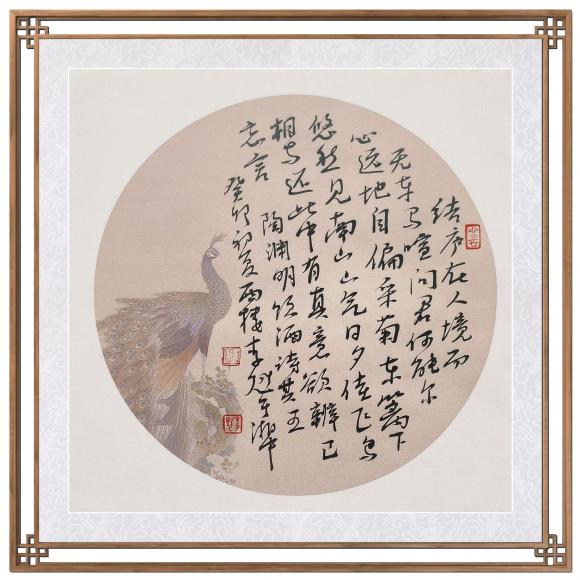 结庐在人境而
无车马喧问君何能尔
心远地自偏采菊东篱下
悠然见南山山气日夕佳飞鸟
相与还此中有真意欲辨已
忘言
陶渊明饮酒诗其五
癸卯初夏